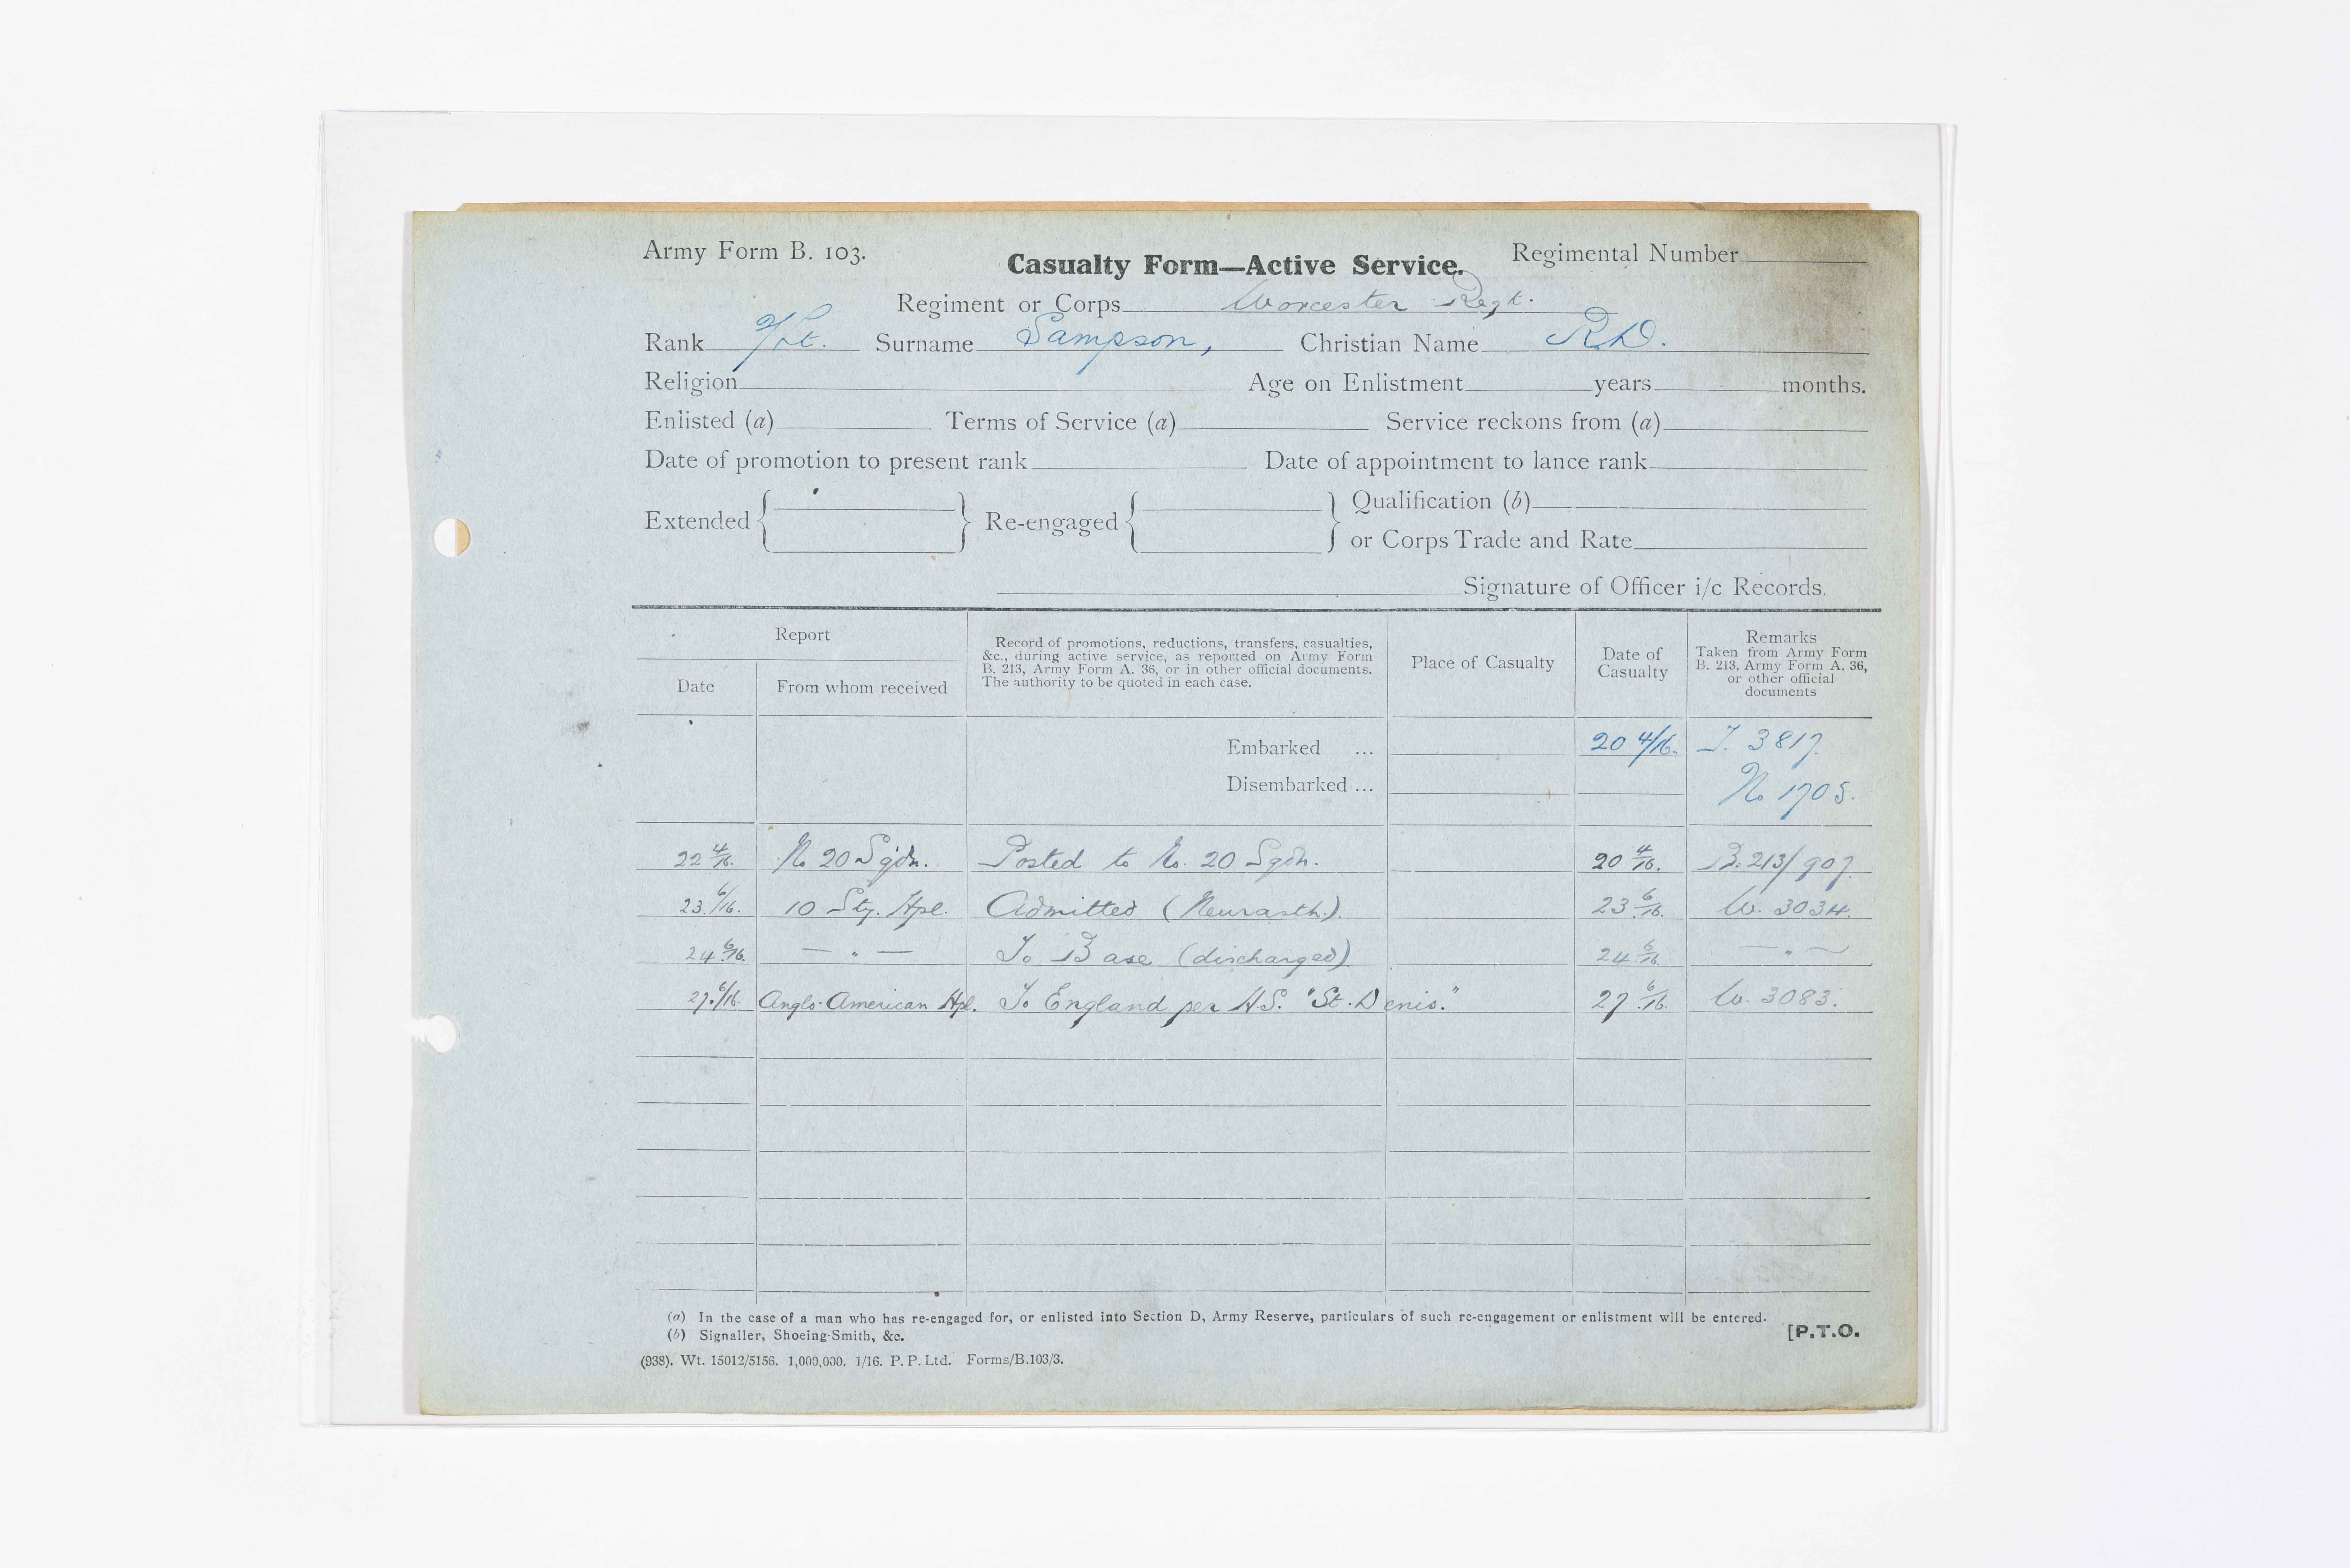 Army Form B. 103.
Casualty Form—Active Service.
Regimental Number
Regiment or Corps Worcester Regt.
Rank 2/Lt. Surname Sampson, Christian Name R.D.
Religion Age on Enlistment years months.
Enlisted (a) Terms of Service (a) Service reckons from (a)
Date of promotion to present rank Date of appointment to lance rank
Extended Re-engaged Qualification (b)
or Corps Trade and Rate
Signature of Officer i/c Records.
Report
Date
From whom received
Record of promotions, reductions, transfers, casualties,
&c., during active service, as reported on Army Form
B. 213, Army Form A. 36, or in other official documents.
The authority to be quoted in each case.
Place of Casualty
Date of
Casualty
Remarks
Taken from Army Form
B. 213, Army Form A. 36,
or other official
documents
Embarked ... 20 4/16. J. 3817.
Disembarked ... No 1705.
22 4/16. No 20 Sqdn. Posted to No. 20 Sqdn. 20 4/16. B.213/907.
23. 6/16. 10 Sty. Hpl. Admitted (Neurasth.) 23 6/16. W. 3034.
24 6/16. — " — To Base (discharged) 24 6/16. — " —
27. 6/16. Anglo-American Hpl. To England per H.S. "St. Denis." 27 6/16. W. 3083.
(a) In the case of a man who has re-engaged for, or enlisted into Section D, Army Reserve, particulars of such re-engagement or enlistment will be entered.
(b) Signaller, Shoeing-Smith, &c.
[P.T.O.
(938). Wt. 15012/5156. 1,000,000. 1/16. P. P. Ltd. Forms/B.103/3.